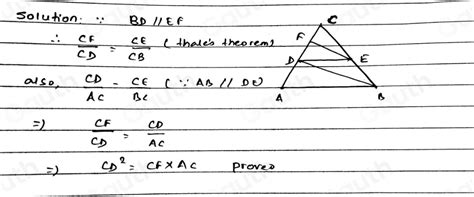 Solution: ∵ BD // EF
∴ CF/CD = CE/CB (thale's theorem)
also, CD/AC = CE/BC (∵ AB // DE)
⇒ CF/CD = CD/AC
⇒ CD² = CF × AC proved
C
F
D
E
A
B